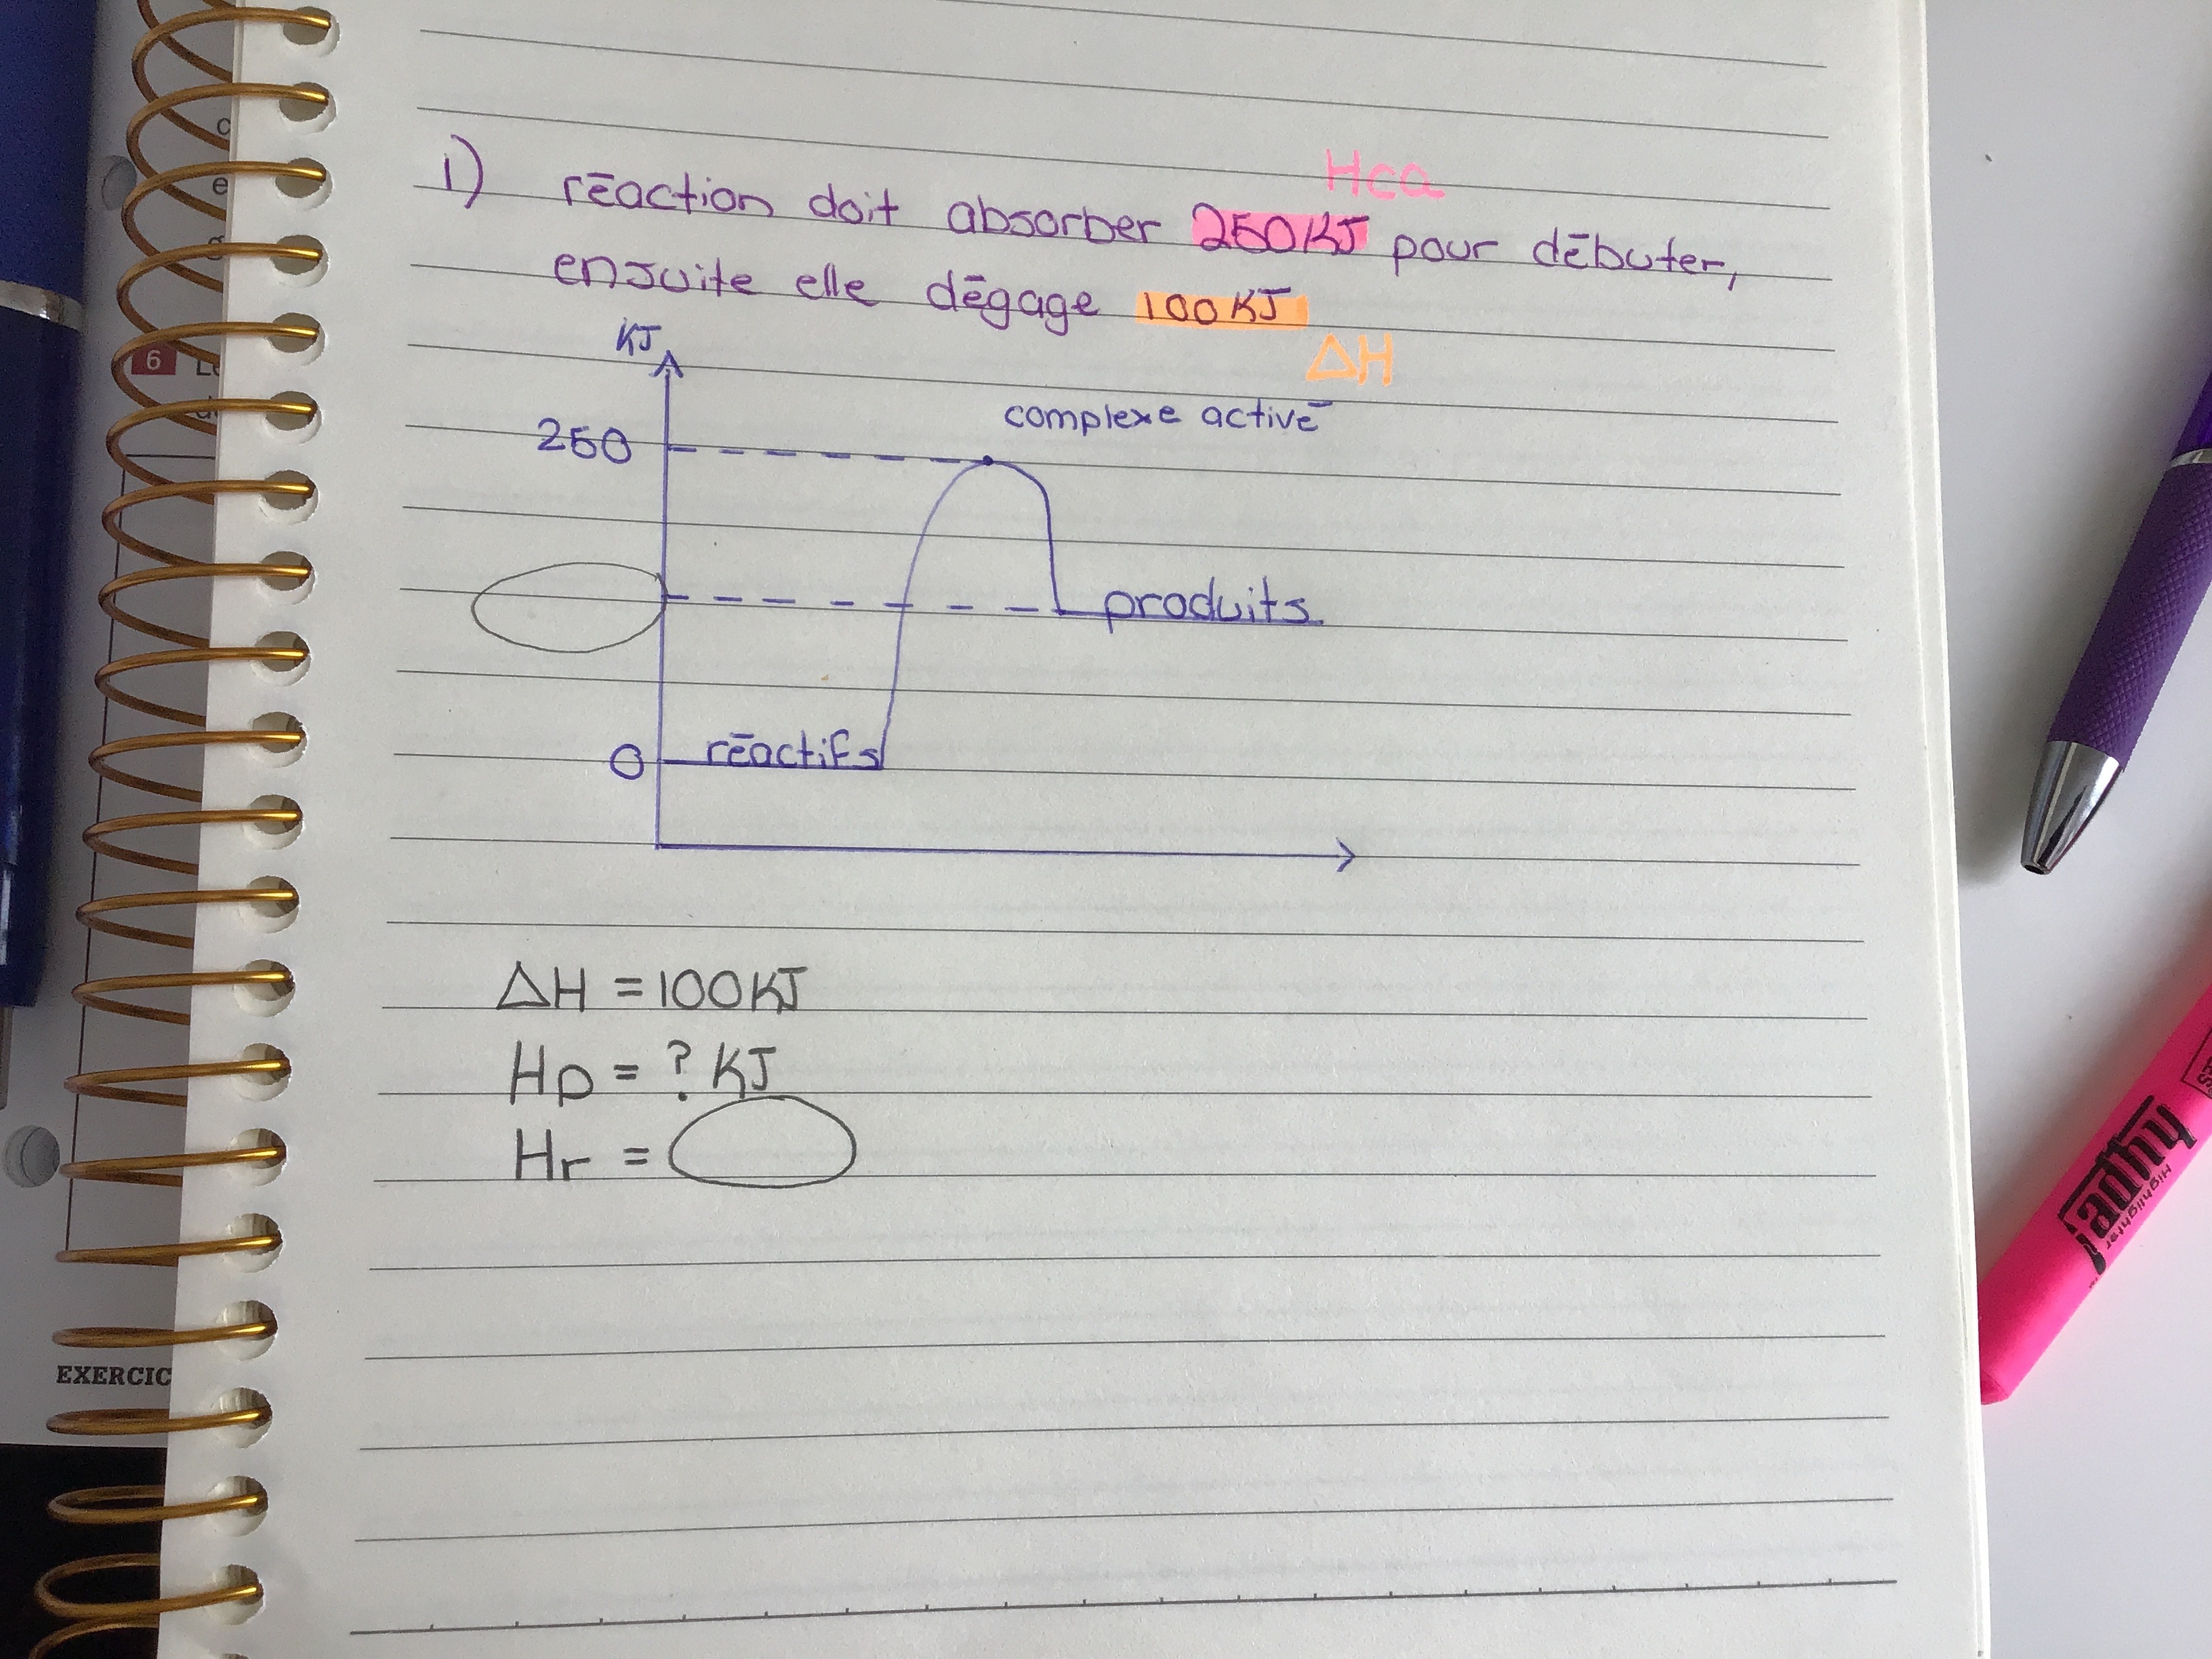 Hca
1) réaction doit absorber 250KJ pour débuter,
ensuite elle dégage 100KJ
ΔH
KJ
complexe activé
250
produits
0 réactifs
ΔH = 100KJ
Hp = ? KJ
Hr =
6
EXERCIC
jadhy
Highlighter